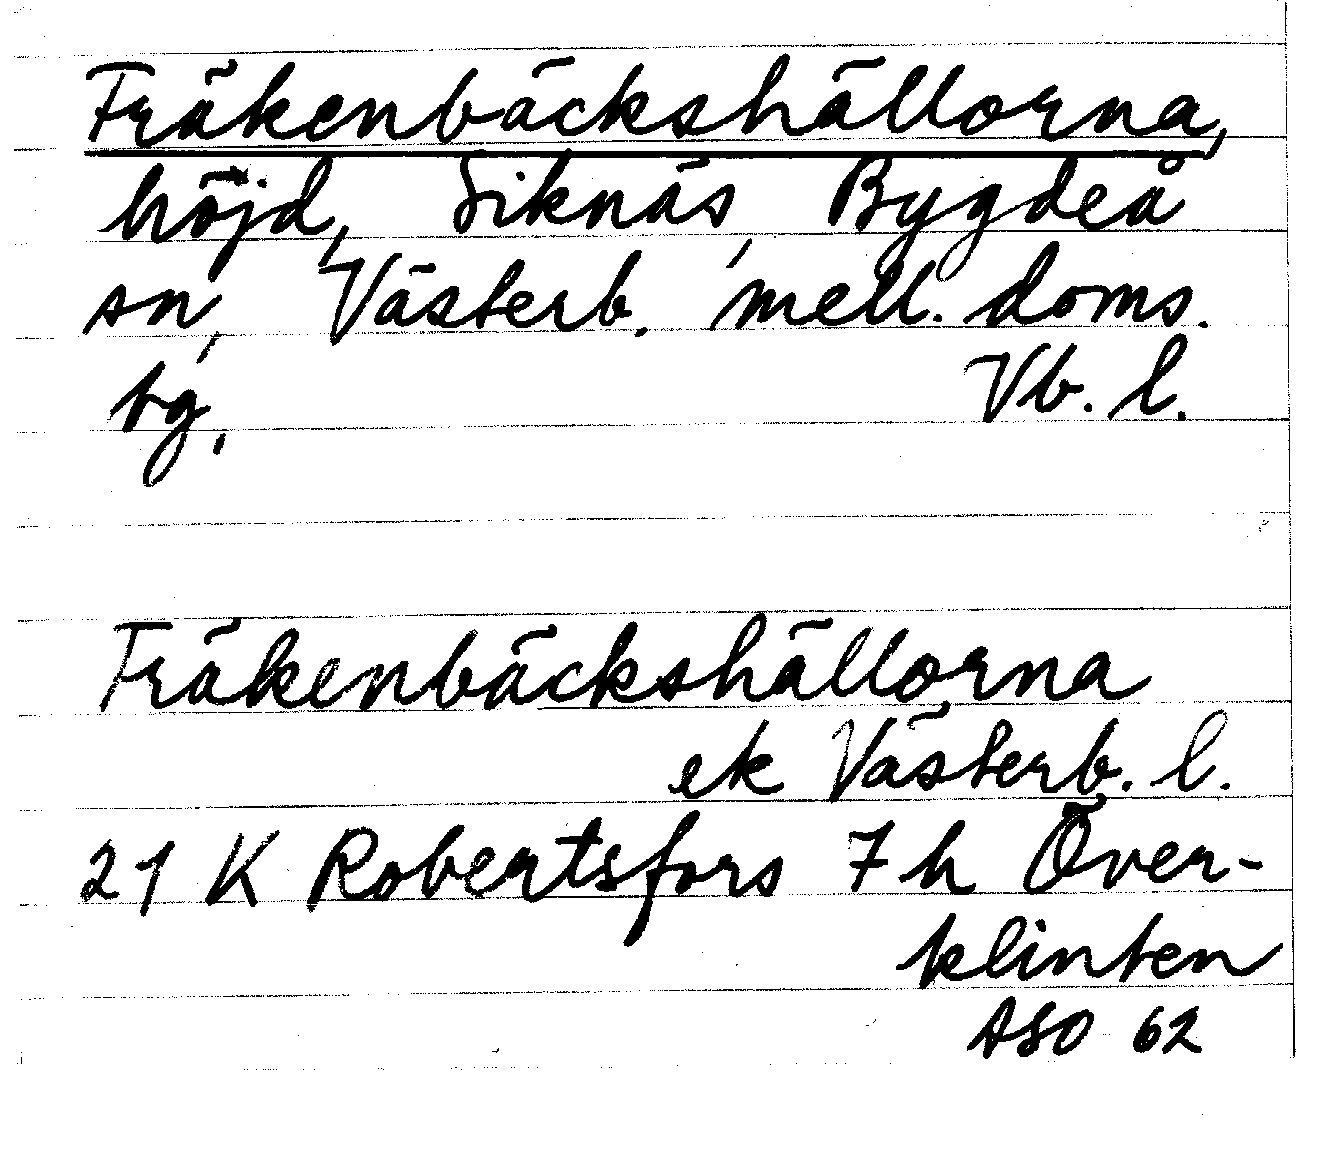 Fräkenbäckshällorna,
höjd, Siknäs, Bygdeå
sn, Västerb. mell. doms.
tg, Vb. l.
Fräkenbäckshällorna
ek Västerb. l.
21 K Robertsfors 7h Över-
klinten
ASO 62